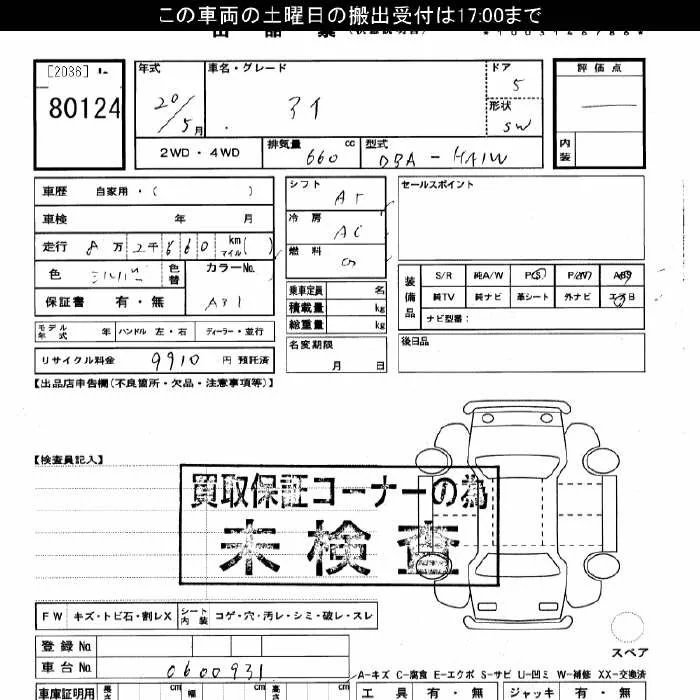 この車両の土曜日の搬出受付は17:00まで
[2036]
80124
年式
20/5月
車名・グレード
アイ
ドア
5
形状
SW
評価点
内装
2WD・4WD
排気量 660 cc
型式
DBA-HA1W
車歴 自家用・( )
車検 年 月
走行 8万2千660 km マイル( )
色 シルバー
色替
カラーNo.
A31
保証書 有・無
モデル年式 年
ハンドル 左・右
ディーラー・並行
リサイクル料金 9910 円 預託済
シフト
AT
冷房
AC
燃料
乗車定員 名
積載量 kg
総重量 kg
名変期限
月 日
セールスポイント
装備品
S/R 純A/W P(S) P/W ABS
純TV 純ナビ 革シート 外ナビ エアB
ナビ型番:
後日品
【出品店申告欄(不良箇所・欠品・注意事項等)】
【検査員記入】
買取保証コーナーの為
未検査
FW キズ・トビ石・割レX
シート内装 コゲ・穴・汚レ・シミ・破レ・スレ
登録No.
車台No. 0600931
スペア
A-キズ C-腐食 E-エクボ S-サビ U-凹ミ W-補修 XX-交換済
車庫証明用 長さ cm 幅 cm 高さ cm
工具 有・無 ジャッキ 有・無